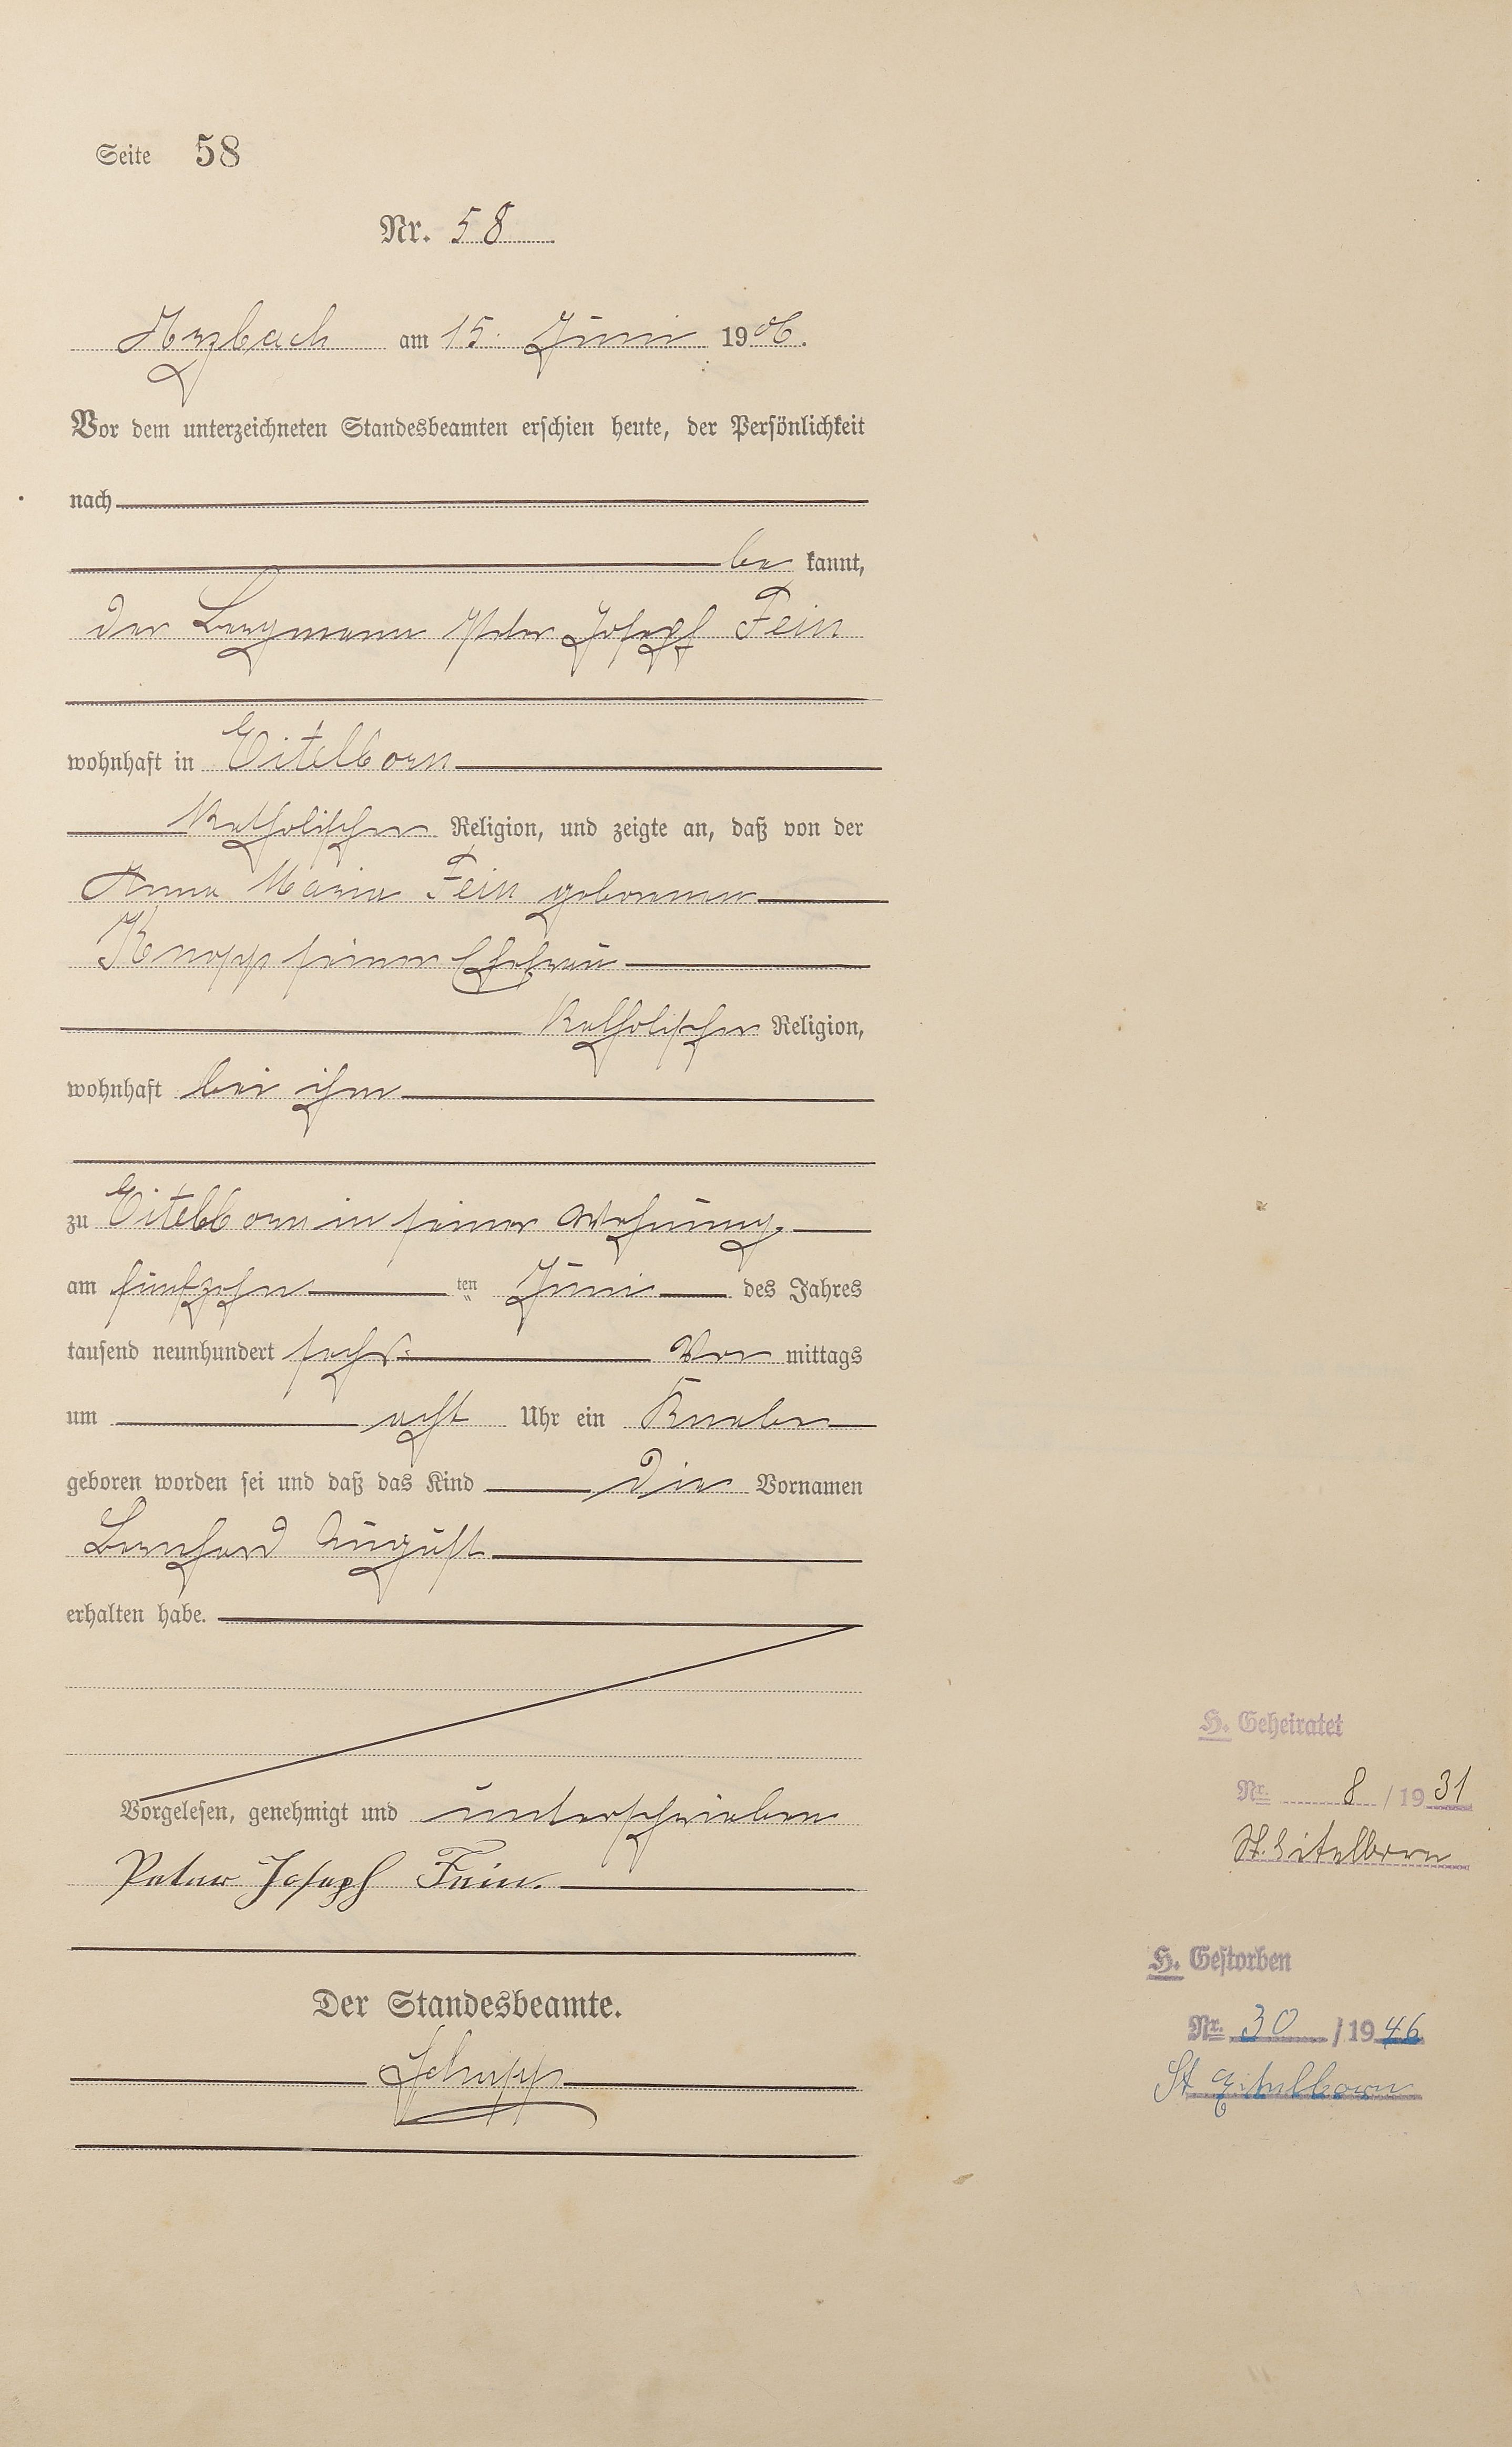 Seite 58
Nr. 58
Arzbach am 15. Juni 1906.
Vor dem unterzeichneten Standesbeamten erschien heute, der Persönlichkeit
nach
be kannt,
der Bergmann Peter Joseph Fein
wohnhaft in Eitelborn
katholischer Religion, und zeigte an, daß von der
Anna Maria Fein geborenen
Knopp seiner Ehefrau
katholischer Religion,
wohnhaft bei ihm
zu Eitelborn in seiner Wohnung
am fünfzehn ten Juni des Jahres
tausend neunhundert sechs Vor mittags
um acht Uhr ein Knabe
geboren worden sei und daß das Kind die Vornamen
Bernhard August
erhalten habe.
Vorgelesen, genehmigt und unterschrieben
Peter Joseph Fein.
Der Standesbeamte.
H. Geheiratet
Nr. 8 / 1931
St. Eitelborn
H. Gestorben
Nr. 30 / 1946
St Eitelborn